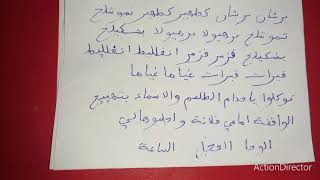 برشان برشان كظهير كظهير نموشلخ
نموشلخ برهيولا برهيولا بشكيلخ
بشكيلخ قزمز قزمز انغلليط انغلليط
قبرات قبرات غياها غياها
توكلوا ياخدام الطلسم والاسماء بتهييج
الواقفة امامي فلانة واجلبوهالي
الوحا العجل الساعة
ActionDirector